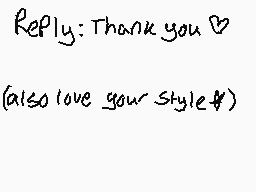 Reply: Thank you ♡
(also love your style★)